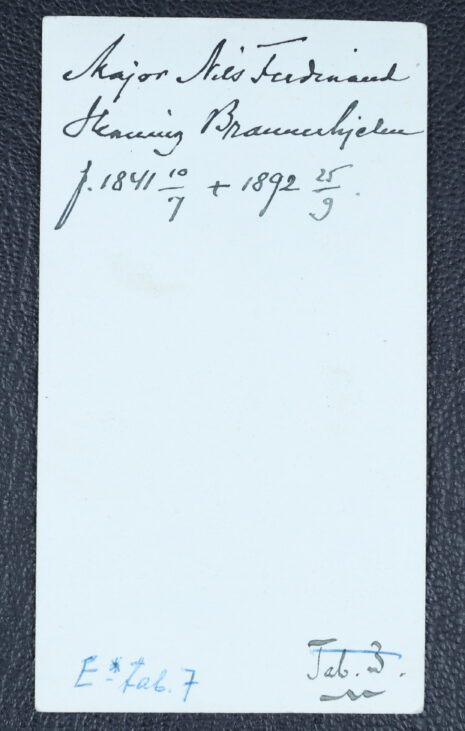 Major Nils Ferdinand
Henning Brannerhjelm
f. 1841 10/7 + 1892 25/9.
Tab. 3.
E * tab. 7